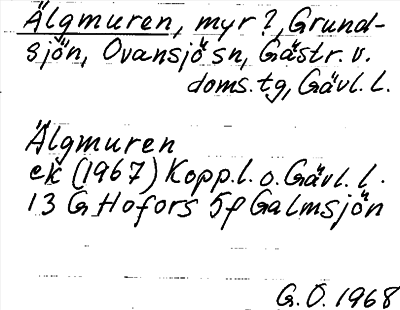 Älgmuren, myr?, Grund-
sjön, Ovansjö sn, Gästr. v.
doms.tg, Gävl. l.
Älgmuren
ek (1967) Kopp. l. o. Gävl. l.
13 G Hofors 5f Galmsjön
G. Ö. 1968